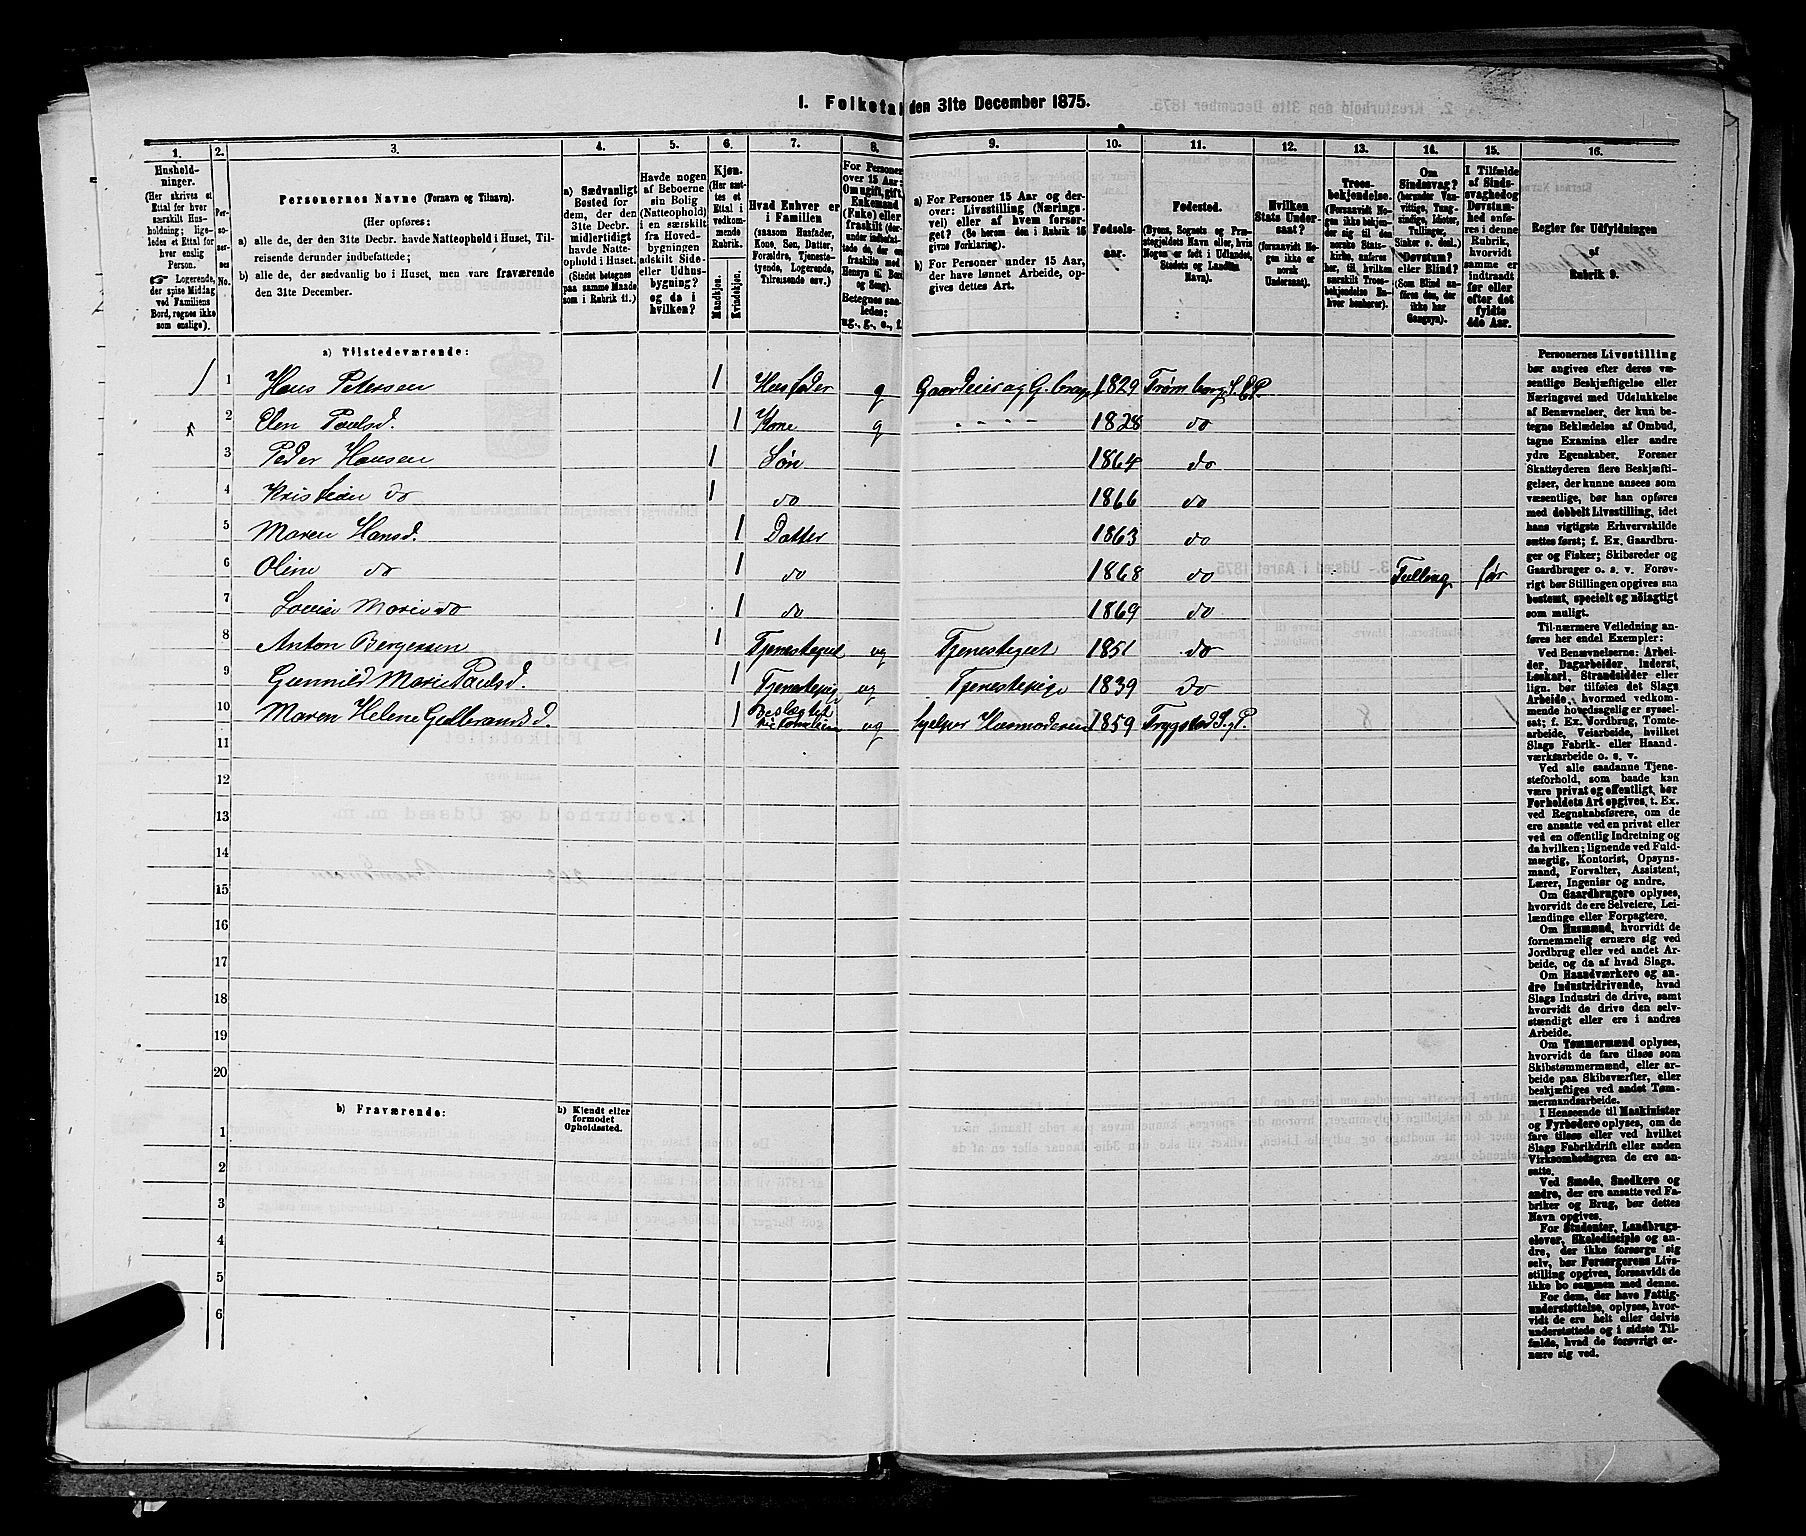 1. Folketal den 31te December 1875.
1. 2. 3. 4. 5. 6. 7. 8. 9. 10. 11. 12. 13. 14. 15. 16.
Husholdninger.
(Her skrives et
Ettal for hver
særskilt Husholdning;
ligeledes et Ettal for
enslig
Person.
☞ Logerende,
der spise Middag
ved Familiens
Bord, regnes ikke
som enslige).
Personernes No.
Personernes Navne (Fornavn og Tilnavn).
(Her opføres:
a) alle de, der den 31te Decbr. havde Natteophold i Huset, Tilreisende derunder indbefattede;
b) alle de, der sædvanlig bo i Huset, men vare fraværende
den 31te December.
a) Sædvanligt
Bosted for
dem, der den
31te Decbr.
midlertidigt
havde Natteophold i Huset.
(Stedet betegnes
paa samme Maade
som i Rubrik 11.)
Havde nogen
af Beboerne
sin Bolig
(Natteophold)
i en særskilt
fra Hovedbygningen
adskilt Side-
eller Udhusbygning?
og da i
hvilken?
Kjøn.
(Her sættes et
Ettal i
vedkommende
Rubrik.
Mandkjøn.
Kvindekjøn.
Hvad Enhver er
i Familien
(saasom Husfader,
Kone, Søn, Datter,
Forældre, Tjenestetyende, Logerende,
Tilreisende osv.)
For Personer
over 15 Aar:
Om ugift, gift,
Enkemand
(Enke) eller
fraskilt
Betegnes saaledes:
ug., g., e., f.
a) For Personer 15 Aar og derover: Livsstilling (Næringsvei) eller af hvem forsørget? (Se herom den i Rubrik 16
givne Forklaring).
b) For Personer under 15 Aar,
der have lønnet Arbeide, opgives dettes Art.
Fødselsaar.
Fødested.
(Byens, Sognets og Præstegjeldets Navn eller, hvis
Nogen er født i Udlandet,
Stedets og Landets
Navn).
Hvilken
Stats Undersaat?
(forsaavidt Nogen ikke er
norsk
Undersaat).
Troesbekjendelse.
(Forsaavidt Nogen ikke bekjender sig til den
norske Statskirke, anføres
her, til hvilken
særskilt Troesbekjendelse Enhver henhører).
Om
Sindssvag?
(herunder Vanvittige, Tungsindige, Idioter,
Tullinger,
Sinker o. desl.)
Døvstum?
eller Blind?
(Som Blind anføres den, der
ikke har
Gangsyn).
I Tilfælde
af Sindssvaghed og
Døvstumhed anføres i denne
Rubrik,
hvorvidt
samme er
indtraadt
før eller
efter det
fyldte
4de Aar.
Regler for Udfyldningen
af
Rubrik 9.
a) Tilstedeværende:
1 Hans Petersen 1 Husfader g Gaardeier og G. brug 1829 Trømborg S. E P.
2 Elen Paulsd. 1 Kone g - - - - 1828 do
3 Peder Hansen 1 Søn 1864 do
4 Kristian do 1 do 1866 do
5 Maren Hansd. 1 Datter 1863 do
6 Oline do 1 do 1868 do Tulling før
7 Lovise Marie do 1 do 1869 do
8 Anton Bergersen 1 Tjenestegut ug Tjenestegut 1851 do
9 Gunnild Marie Paulsd. 1 Tjenestepig ug Tjenestepige 1839 do
10 Maren Helene Gulbrandsd. 1 Beslægtet familien ug hjelper Husmoderen 1859 Trygstad S. g P.
11
12
13
14
15
16
17
18
19
20
b) Fraværende:
b) Kjendt eller
formodet
Opholdssted.
1
2
3
4
5
6
Personernes Livsstilling
bør angives efter deres væsentlige Beskjæftigelse eller
Næringsvei med Udelukkelse
af Benævnelser, der kun betegne Beklædelse af Ombud,
tagne Examina eller andre
ydre Egenskaber. Forener
Skatteyderen flere Beskjæftigelser, der kunne ansees som
væsentlige, bør han opføres
med dobbelt Livsstilling, idet
hans vigtigste Erhvervskilde
sættes først; f. Ex. Gaardbruger og Fisker; Skibsreder og
Gaardbruger o. s. v. Forøvrigt bør Stillingen opgives saa
bestemt, specielt og nöiagtigt
som muligt.
Til nærmere Veiledning anføres her endel Exempler:
Ved Benævnelserne: Arbeider, Dagarbeider, Inderst,
Løskarl, Strandsidder eller
lign. bør tilføies det Slags
Arbeide, hvormed vedkommende hovedsagelig er sysselsat; f. Ex. Jordbrug, Tomtearbeide, Veiarbeide, hvilket
Slags Fabrik- eller Haandværksarbeide o. s. v.
Ved alle saadanne Tjenesteforhold, som baade kan
være privat og offentligt, bør
Forholdets Art opgives, t. Ex.
ved Regnskabsførere, om de
ere ansatte ved en privat eller
ved en offentlig Indretning og
da hvilken; lignende ved Fuldmægtig, Kontorist, Opsynsmand, Forvalter, Assistent,
Lærer, Ingeniør og andre.
Om Gaardbrugere oplyses,
hvorvidt de ere Selveiere, Leilændinge eller Forpagtere.
Om Husmænd, hvorvidt de
fornemmelig ernære sig ved
Jordbrug eller ved andet Arbeide, og da af hvad Slags.
Om Haandværkere og andre Industridrivende, hvad
Slags Industri de drive, samt
hvorvidt de drive den selvstændigt eller ere i andres
Arbeide.
Om Tømmermænd oplyses,
hvorvidt de fare tilsøs som
Skibstømmermænd, eller arbeide paa Skibsværfter, eller
beskjæftiges ved andet Tømmermandsarbeide.
I Henseende til Maskinister
og Fyrbødere oplyses, om de
fare tilsøs eller ved hvilket
Slags Fabrikdrift eller anden
Virksomhedsgren de ere ansatte.
Ved Smede, Snedkere og
andre, der ere ansatte ved Fabriker og Brug, bør dettes
Navn opgives.
For Studenter, Landbrugselever, Skoledisciple og andre, der ikke forsørge sig
selv, bør Forsørgerens Livsstilling opgives, forsaavidt de
ikke bo sammen med denne.
For dem, der have Fattigunderstøttelse, oplyses, hvorvidt de ere helt eller delvis
understøttede og i sidste Tilfælde, hvad de forøvrigt ernære sig ved.